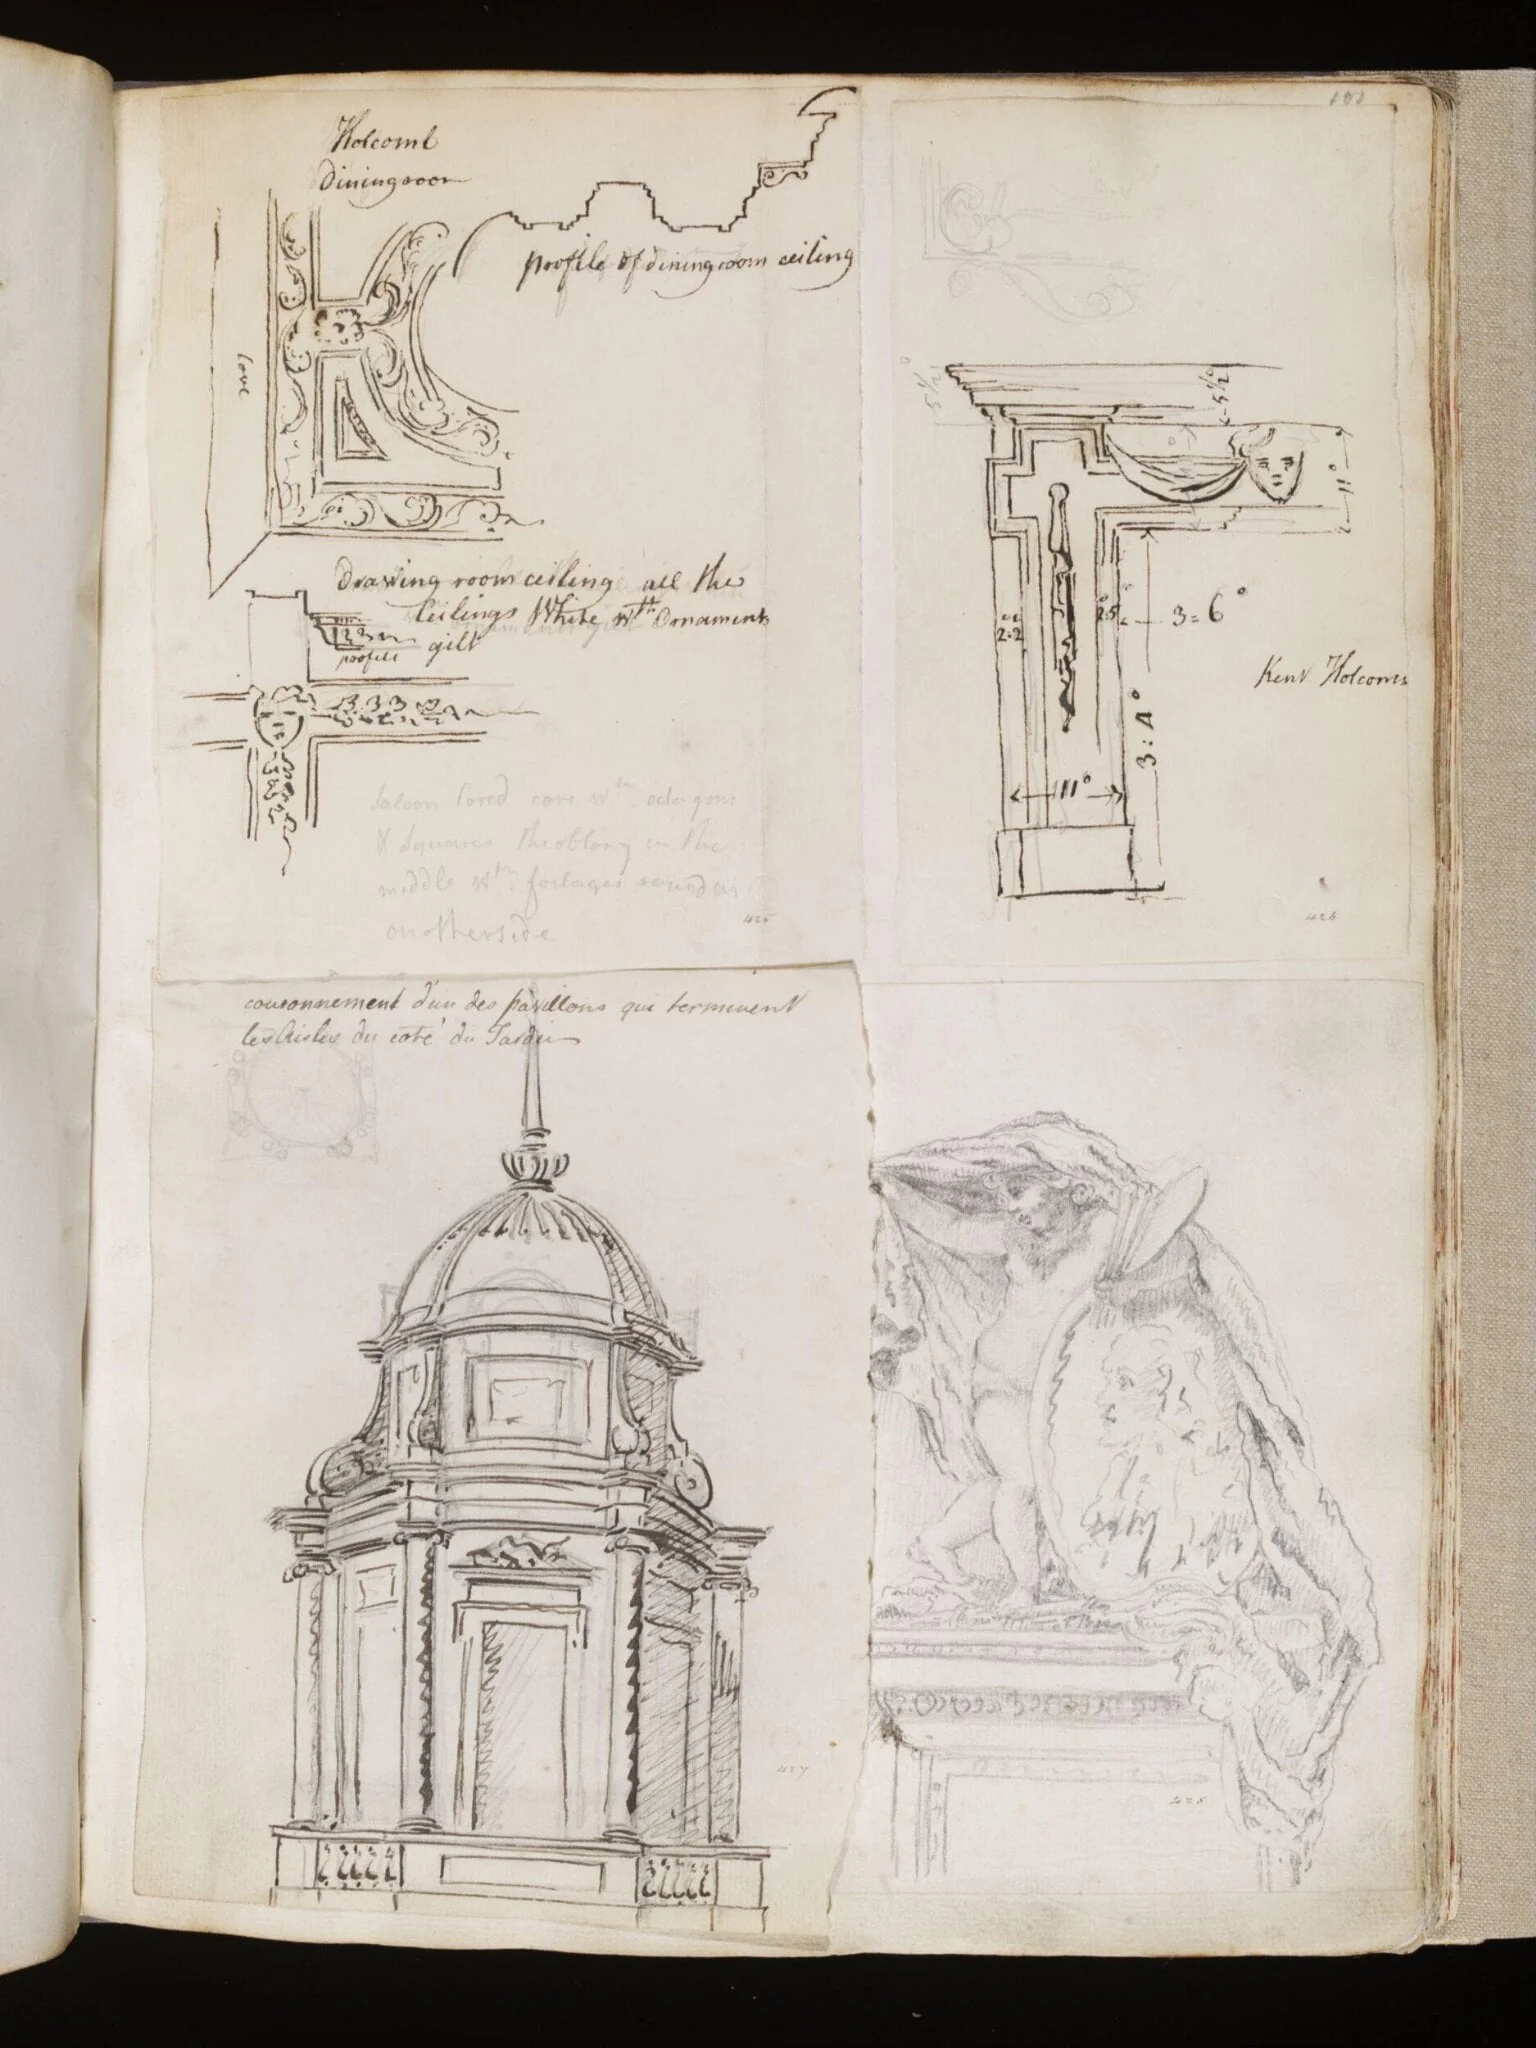 Holcomb
Diningroom
profile of diningroom ceiling
Cove
Drawing room ceiling all the
Ceilings White wth Ornaments
gilt
profile
Saloon Coved cove wth octagons
& Squares the oblong in the
middle wth foilages round in
on otherside
425
2/15
3=6°
2:2
2:5
3:4°
11°
11°
Kent Holcomb
426
couronnement d'un des pavillons qui terminent
les Aisles du coté du Jardin
427
428